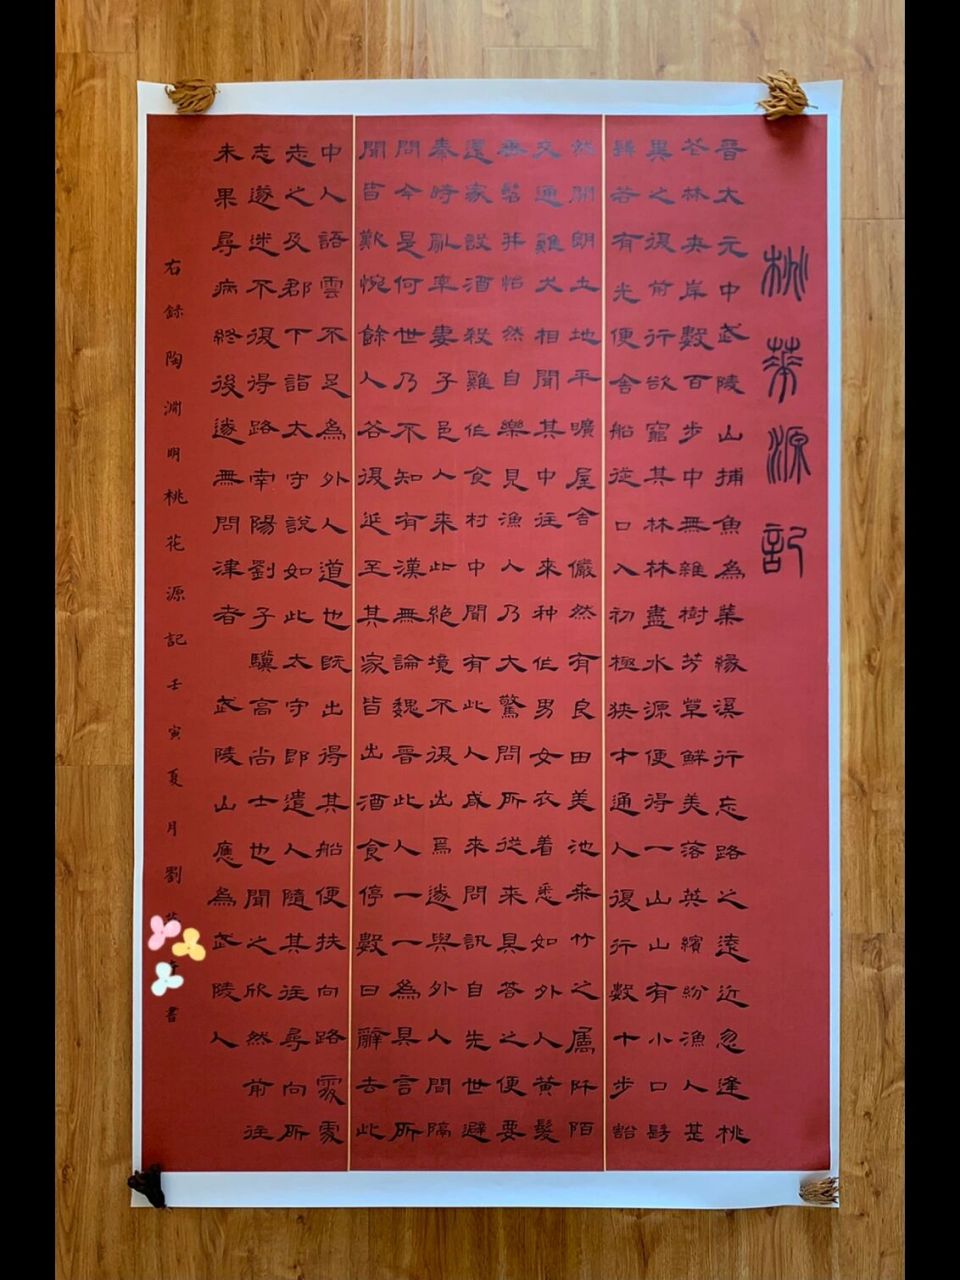 桃華源記
晉太元中武陵山捕魚為業緣溪行忘路之遠近忽逢桃
花林夹岸數百步中無雜樹芳草鮮美落英繽紛漁人甚
異之復前行欲窮其林林盡水源便得一山山有小口髣
髴若有光便舍船從口入初極狹才通人復行數十步豁
然開朗土地平曠屋舍儼然有良田美池桑竹之屬阡陌
交通雞犬相聞其中往來种作男女衣着悉如外人黃髮
垂髫并怡然自樂見漁人乃大驚問所從來具答之便要
還家設酒殺雞作食村中聞有此人咸來問訊自先世避
秦時亂率妻子邑人來此絕境不復出焉遂與外人間隔
問今是何世乃不知有漢無論魏晉此人一一為具言所
聞皆歎惋餘人各復延至其家皆出酒食停數日辭去此
中人語雲不足為外人道也既出得其船便扶向路處處
志之及郡下詣太守說如此太守即遣人隨其往尋向所
志遂迷不復得路南陽劉子驥高尚士也聞之欣然前往
未果尋病終後遂無問津者 武陵山應為武陵人
右録陶淵明桃花源記壬寅夏月劉書